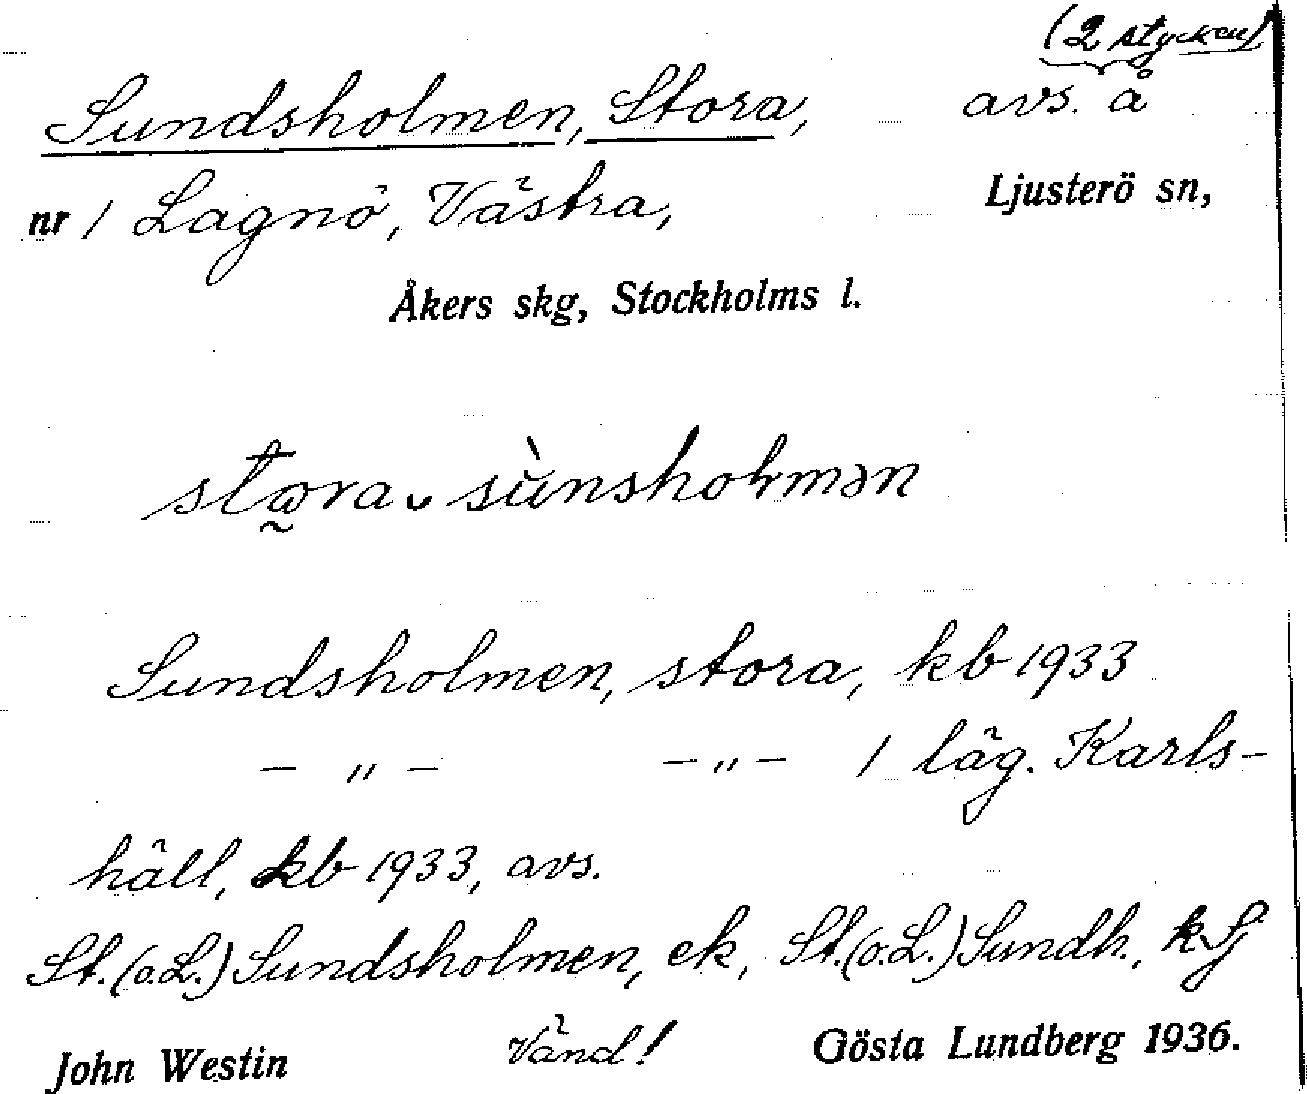 (2 stycken)
Sundsholmen, Stora, avs. å
nr 1 Lagnö, Västra, Ljusterö sn,
Åkers skg, Stockholms l.
Sundsholmen, stora, kb 1933
– " – – " – 1 läg. Karls-
häll, kb 1933, avs.
St. (o. L.) Sundsholmen, ek, St. (o. L.) Sundh.,
John Westin Vänd! Gösta Lundberg 1936.